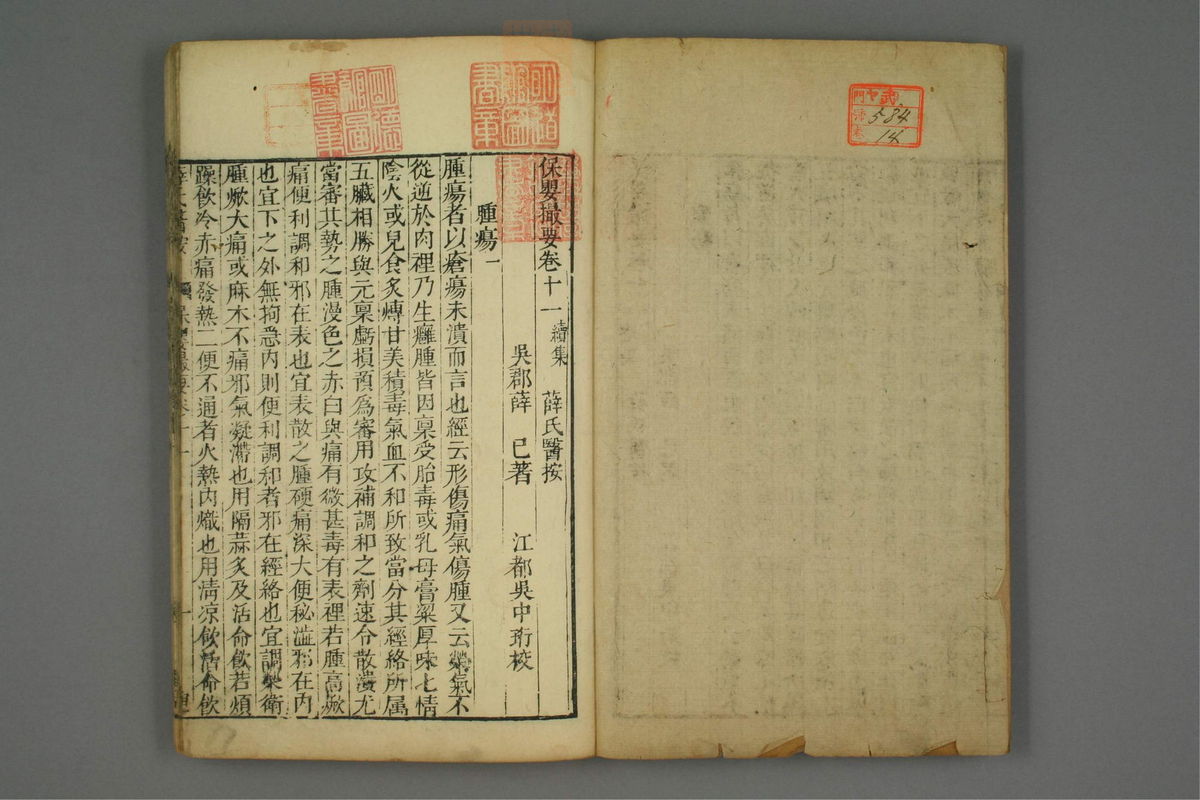 保嬰撮要卷十一 續集 薛氏醫按
吳郡薛 已著 江都吳中珩校
腫瘍一
腫瘍者以瘡瘍未潰而言也經云形傷痛氣傷腫又云榮氣不
從逆於肉裡乃生癰腫皆因稟受胎毒或乳母膏粱厚味七情
陰火或兒食炙煿甘美積毒氣血不和所致當分其經絡所属
五臟相勝與元稟虧損預爲審用攻補調和之劑速令散潰尤
當審其勢之腫漫色之赤白與痛有微甚毒有表裡若腫高焮
痛便利調和邪在表也宜表散之腫硬痛深大便秘澁邪在内
也宜下之外無拘急内則便利調和者邪在經絡也宜調榮衛
腫焮大痛或麻木不痛邪氣凝滯也用隔蒜炙及活命飲若煩
躁飲冷赤痛發熱二便不通者火熱内熾也用清凉飲活命飲
明道館圖書章
明德館圖書章
武
584
14